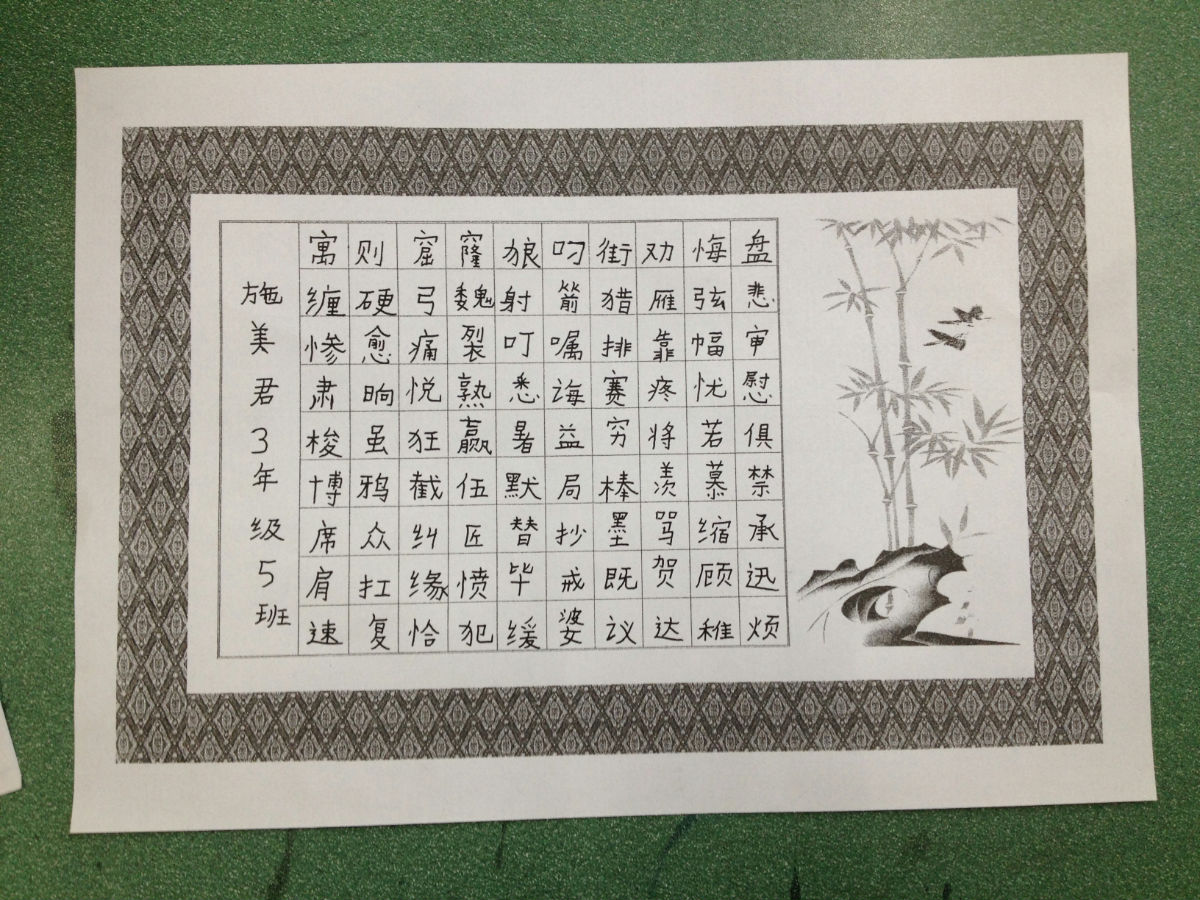 寓则窟窿狼叼街劝悔盘
缠硬弓魏射箭猎雁弦悲
惨愈痛裂叮嘱排靠幅审
肃晌悦熟悉诲赛疼忧慰
梭虽狂赢暑益穷将若俱
博鸦截伍默局棒羡慕禁
席众纠匠替抄墨骂缩承
肩扛缘愤毕戒既贺顾迅
速复恰犯缓婆议达稚烦
施美君3年级5班